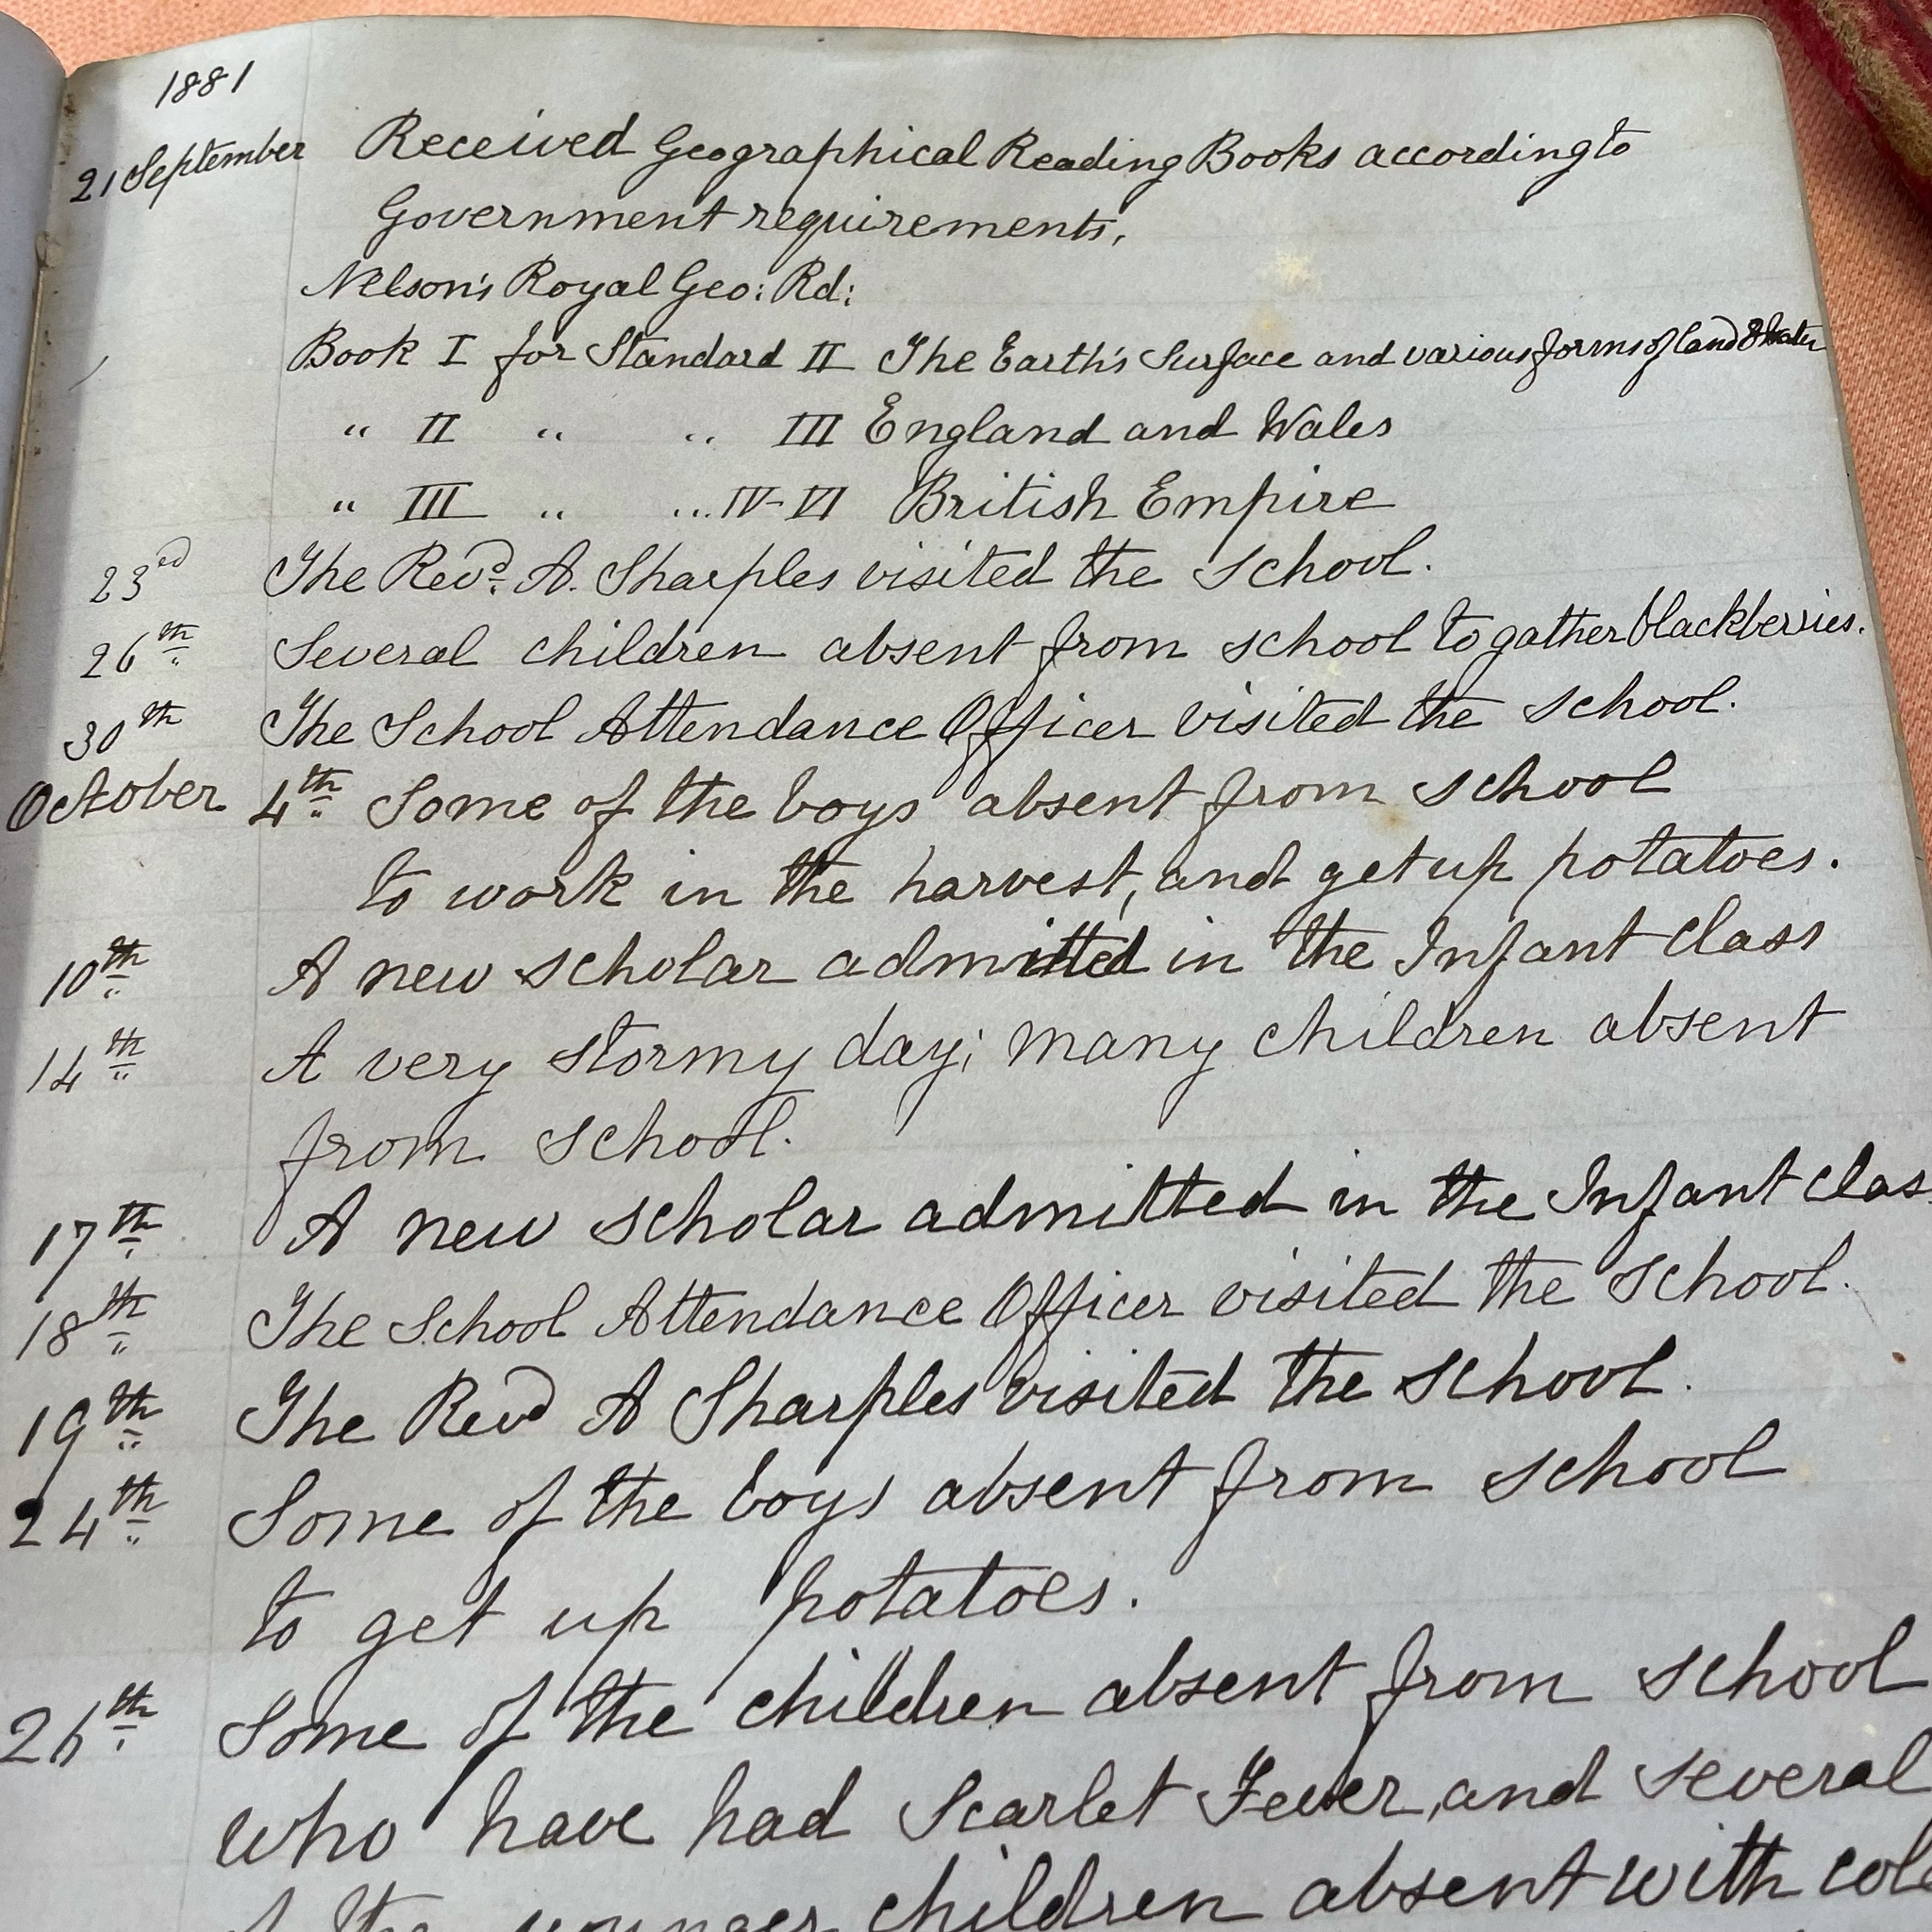 1881
21 September Received Geographical Reading Books according to
Government requirements,
Nelson's Royal Geo: Rd:
Book I for Standard II The Earth's Surface and various forms of land & water
" II " " III England and Wales
" III " " IV-VI British Empire
23rd The Revd. A. Sharples visited the school.
26th Several children absent from school to gather blackberries.
30th The School Attendance Officer visited the school.
October 4th Some of the boys absent from school
to work in the harvest, and get up potatoes.
10th A new scholar admitted in the Infant class
14th A very stormy day; many children absent
from school.
17th A new scholar admitted in the Infant clas
18th The School Attendance Officer visited the school.
19th The Revd A Sharples visited the school.
24th Some of the boys absent from school
to get up potatoes.
26th Some of the children absent from school
who have had Scarlet Fever, and several
of the younger children absent with col